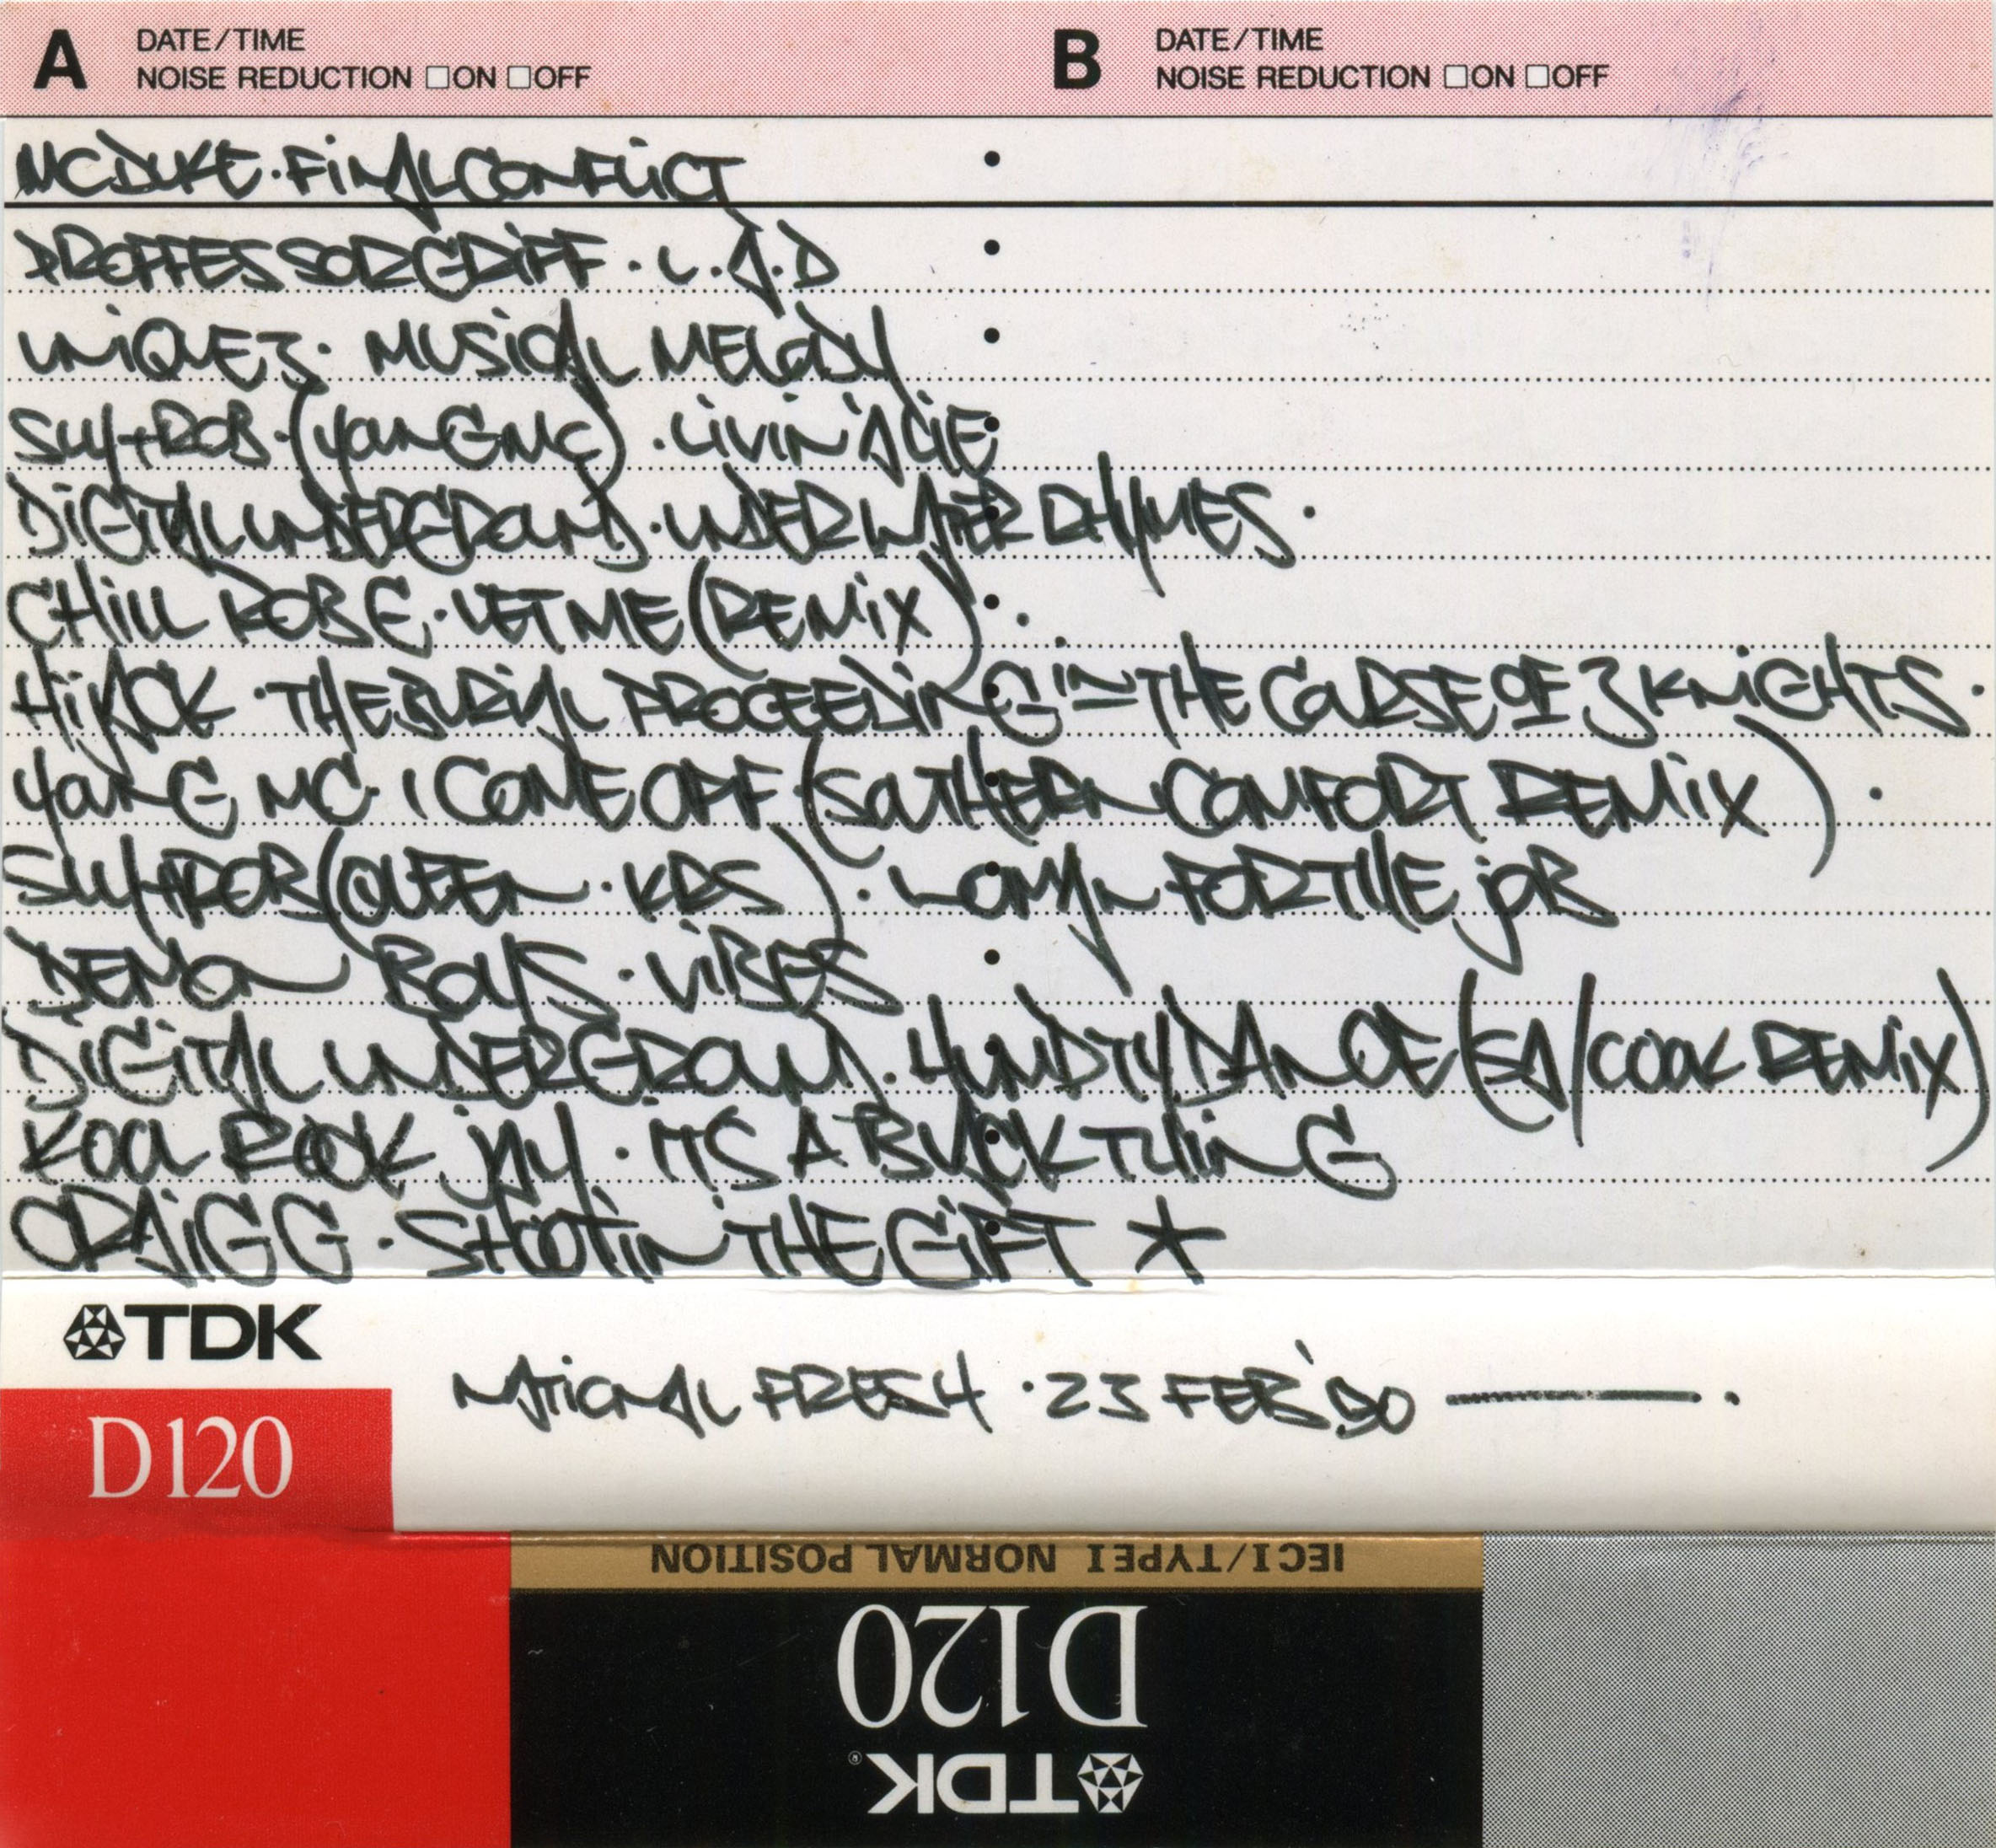 A DATE/TIME B DATE/TIME
NOISE REDUCTION □ON □OFF NOISE REDUCTION □ON □OFF
MC DUKE · FINAL CONFLICT
PROFFESSOR GRIFF · L.A.D
UNIQUE 3 · MUSICAL MELODY
SLY+ROB · (YOUNG MC) · LIVIN' A LIE
DIGITAL UNDERGROUND · UNDERWATER RHYMES ·
CHILL ROB G · LET ME (REMIX) ·
HIJACK · THE BURIAL PROCEEDING IN THE COURSE OF 3 KNIGHTS ·
YOUNG MC · I COME OFF (SOUTHERN COMFORT REMIX) ·
SLY+ROB (QUEEN · KRS) · WOMAN FOR THE JOB
DEMON BOYS · VIBES
DIGITAL UNDERGROUND · HUMPTY DANCE (/COOK REMIX)
KOOL ROCK JAY · ITS A BLACK THING
CRAIG G · SHOOTIN THE GIFT *
TDK
D120
NATIONAL FRESH · 23 FEB '90 — .
IECI/TYPEI NORMAL POSITION
D120
TDK®